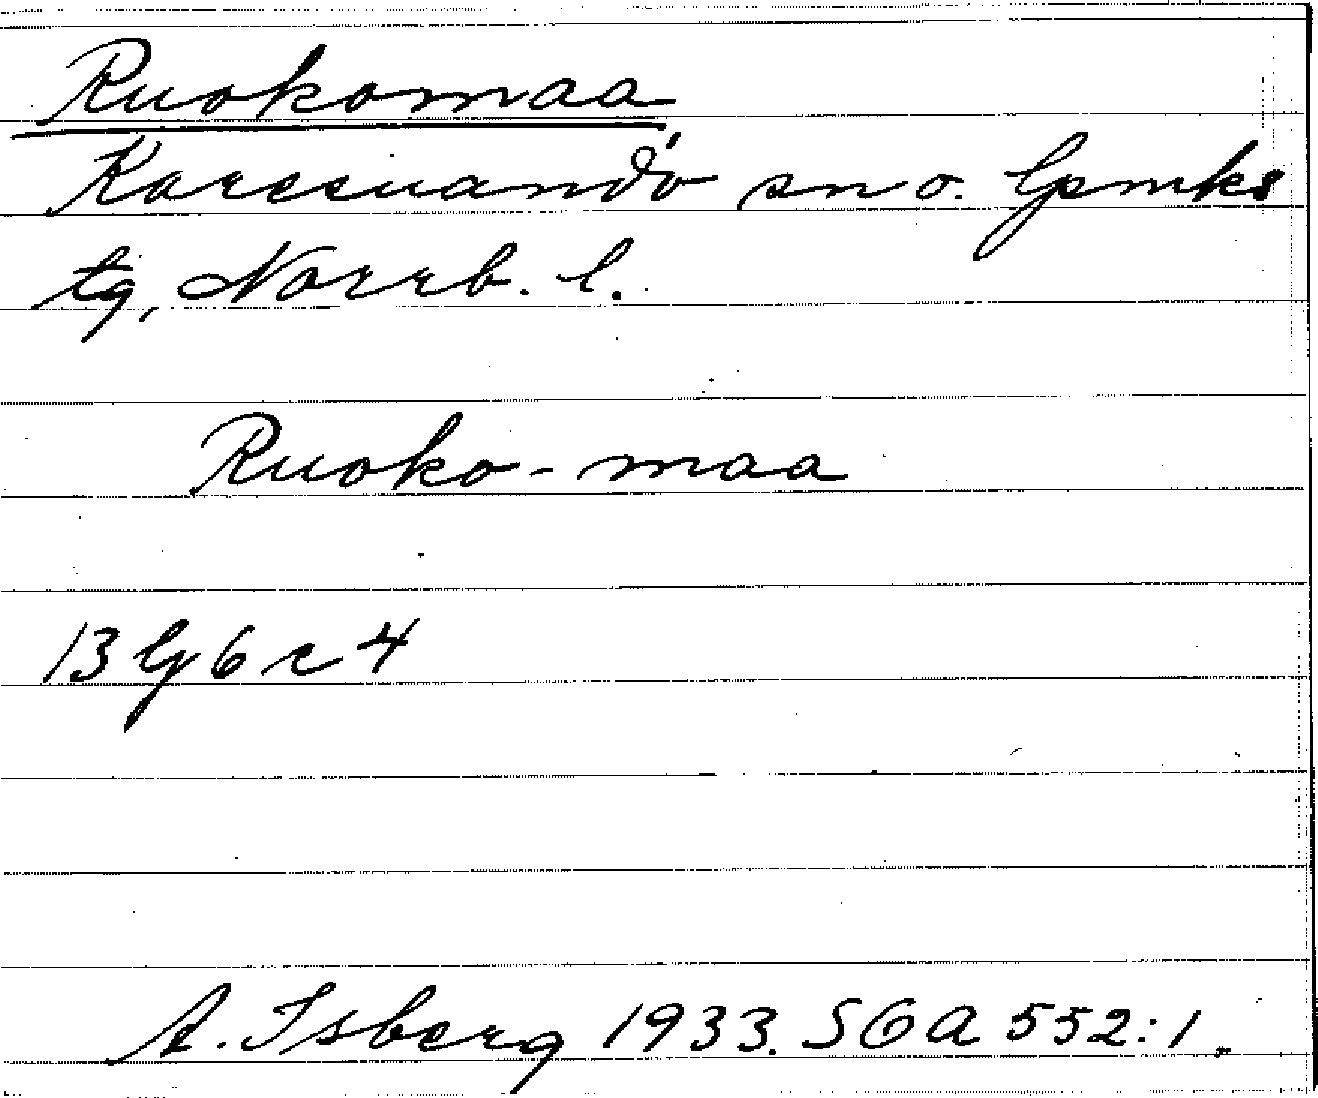 Ruokomaa
Karesuando sn o. lpmks
tg, Norrb. l.
Ruoko-maa
13 g 6 c 4
A. Isberg 1933. SOA 552:1.